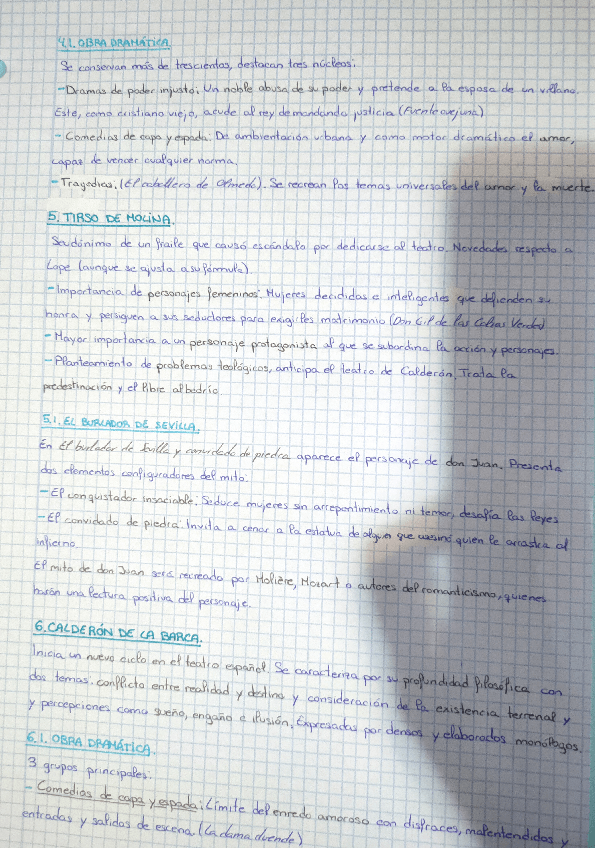 4.1. OBRA DRAMÁTICA.
Se conservan más de trescientas, destacan tres núcleos:
- Dramas de poder injusto: Un noble abusa de su poder y pretende a la esposa de un villano.
Este, como cristiano viejo, acude al rey demandando justicia (Fuente ovejuna)
- Comedias de capa y espada: De ambientación urbana y como motor dramático el amor,
capaz de vencer cualquier norma.
- Tragedias: (El caballero de Olmedo). Se recrean los temas universales del amor y la muerte.
5. TIRSO DE MOLINA.
Seudónimo de un fraile que causó escándalo por dedicarse al teatro. Novedades respecto a
Lope (aunque se ajusta a su fórmula).
- Importancia de personajes femeninos: Mujeres decididas e inteligentes que defienden su
honra y persiguen a sus seductores para exigirles matrimonio (Don Gil de las Calzas Verdes)
- Mayor importancia a un personaje protagonista al que se subordina la acción y personajes.
- Planteamiento de problemas teológicos, anticipa el teatro de Calderón. Trata la
predestinación y el libre albedrío.
5.1. EL BURLADOR DE SEVILLA.
En El burlador de Sevilla y convidado de piedra aparece el personaje de don Juan. Presenta
dos elementos configuradores del mito:
- El conquistador insaciable: Seduce mujeres sin arrepentimiento ni temor, desafía las leyes
- El convidado de piedra: Invita a cenar a la estatua de alguien que asesinó quien le arrastra al
infierno.
El mito de don Juan será recreado por Molière, Mozart o autores del romanticismo, quienes
harán una lectura positiva del personaje.
6. CALDERÓN DE LA BARCA.
Inicia un nuevo ciclo en el teatro español. Se caracteriza por su profundidad filosófica con
dos temas: conflicto entre realidad y destino y consideración de la existencia terrenal y
y percepciones como sueño, engaño e ilusión. Expresadas por densos y elaborados monólogos.
6.1. OBRA DRAMÁTICA.
3 grupos principales:
- Comedias de capa y espada: Límite del enredo amoroso con disfraces, malentendidos y
entradas y salidas de escena. (La dama duende)